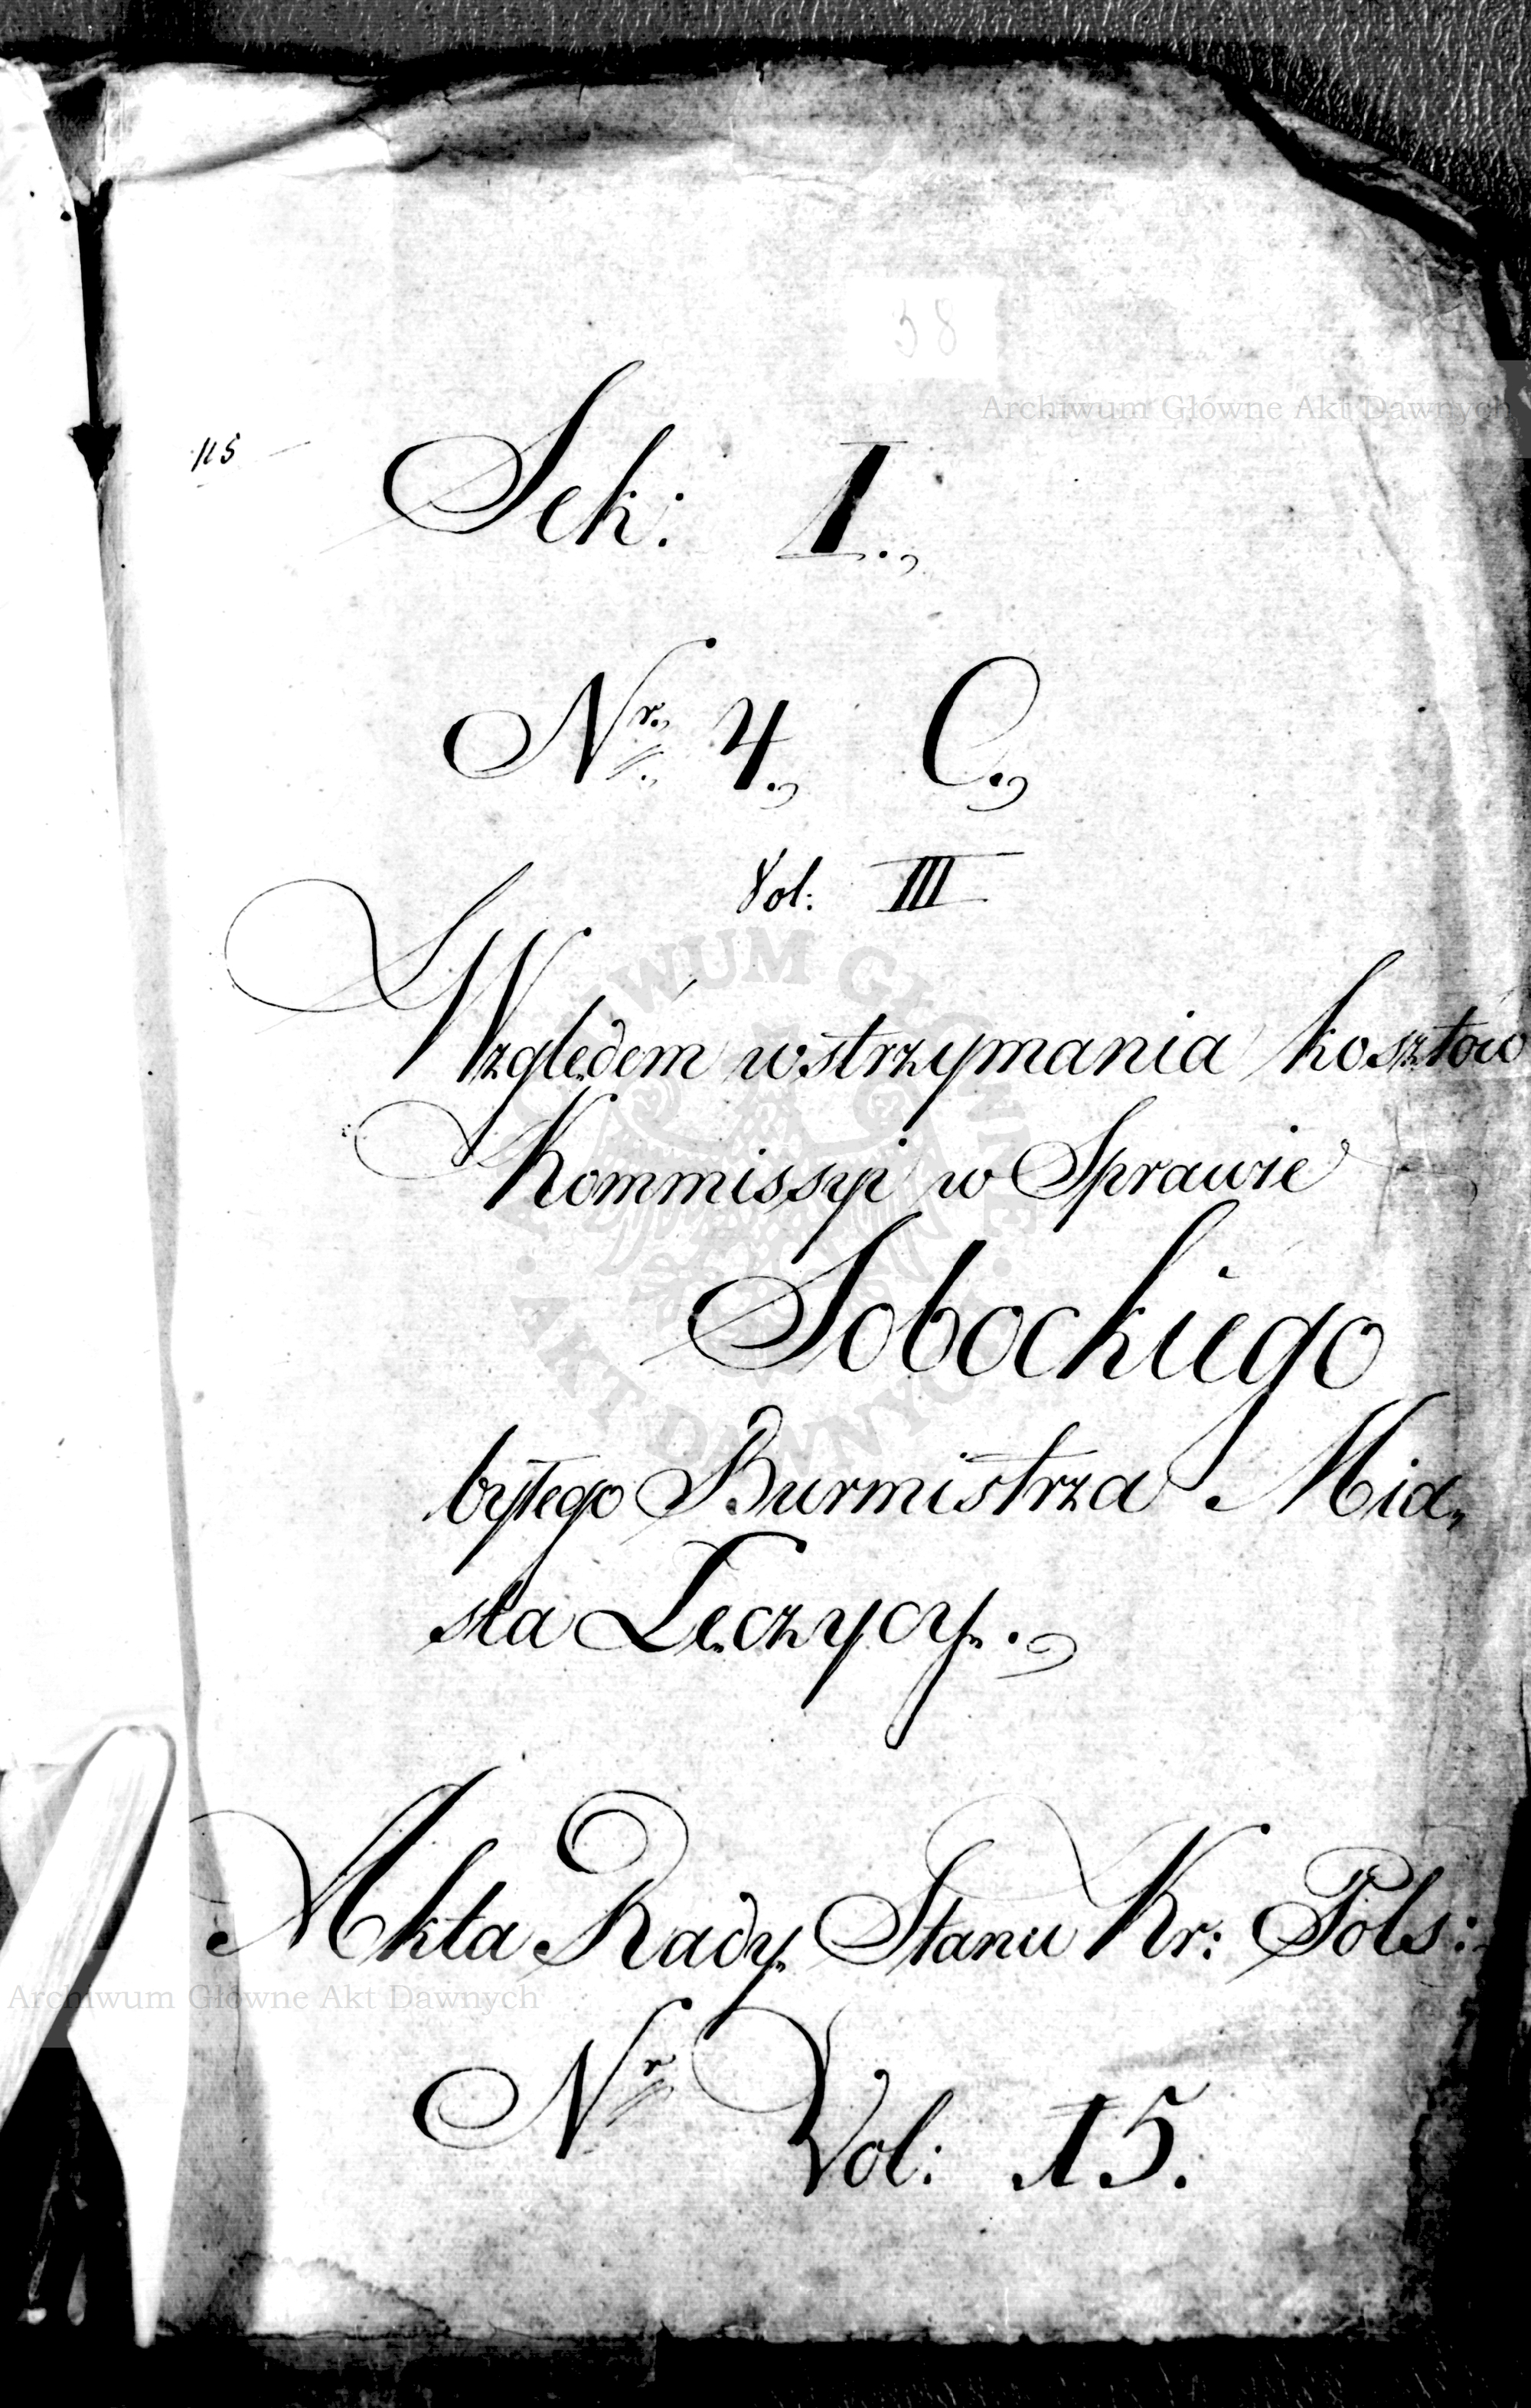 58
Archiwum Główne Akt Dawnych
115
Sek: I.,
Nr. 4., C.,
Vol: III
Względem wstrzymania kosztów
Kommissyi w Sprawie
Sobockiego
byłego Burmistrza Mia„
sta Łęczycy.
Akta Rady Stanu Kr: Pols:
Archiwum Główne Akt Dawnych
Nr Vol: 15.
ARCHIWUM GŁÓWNE · AKT DAWNYCH ·